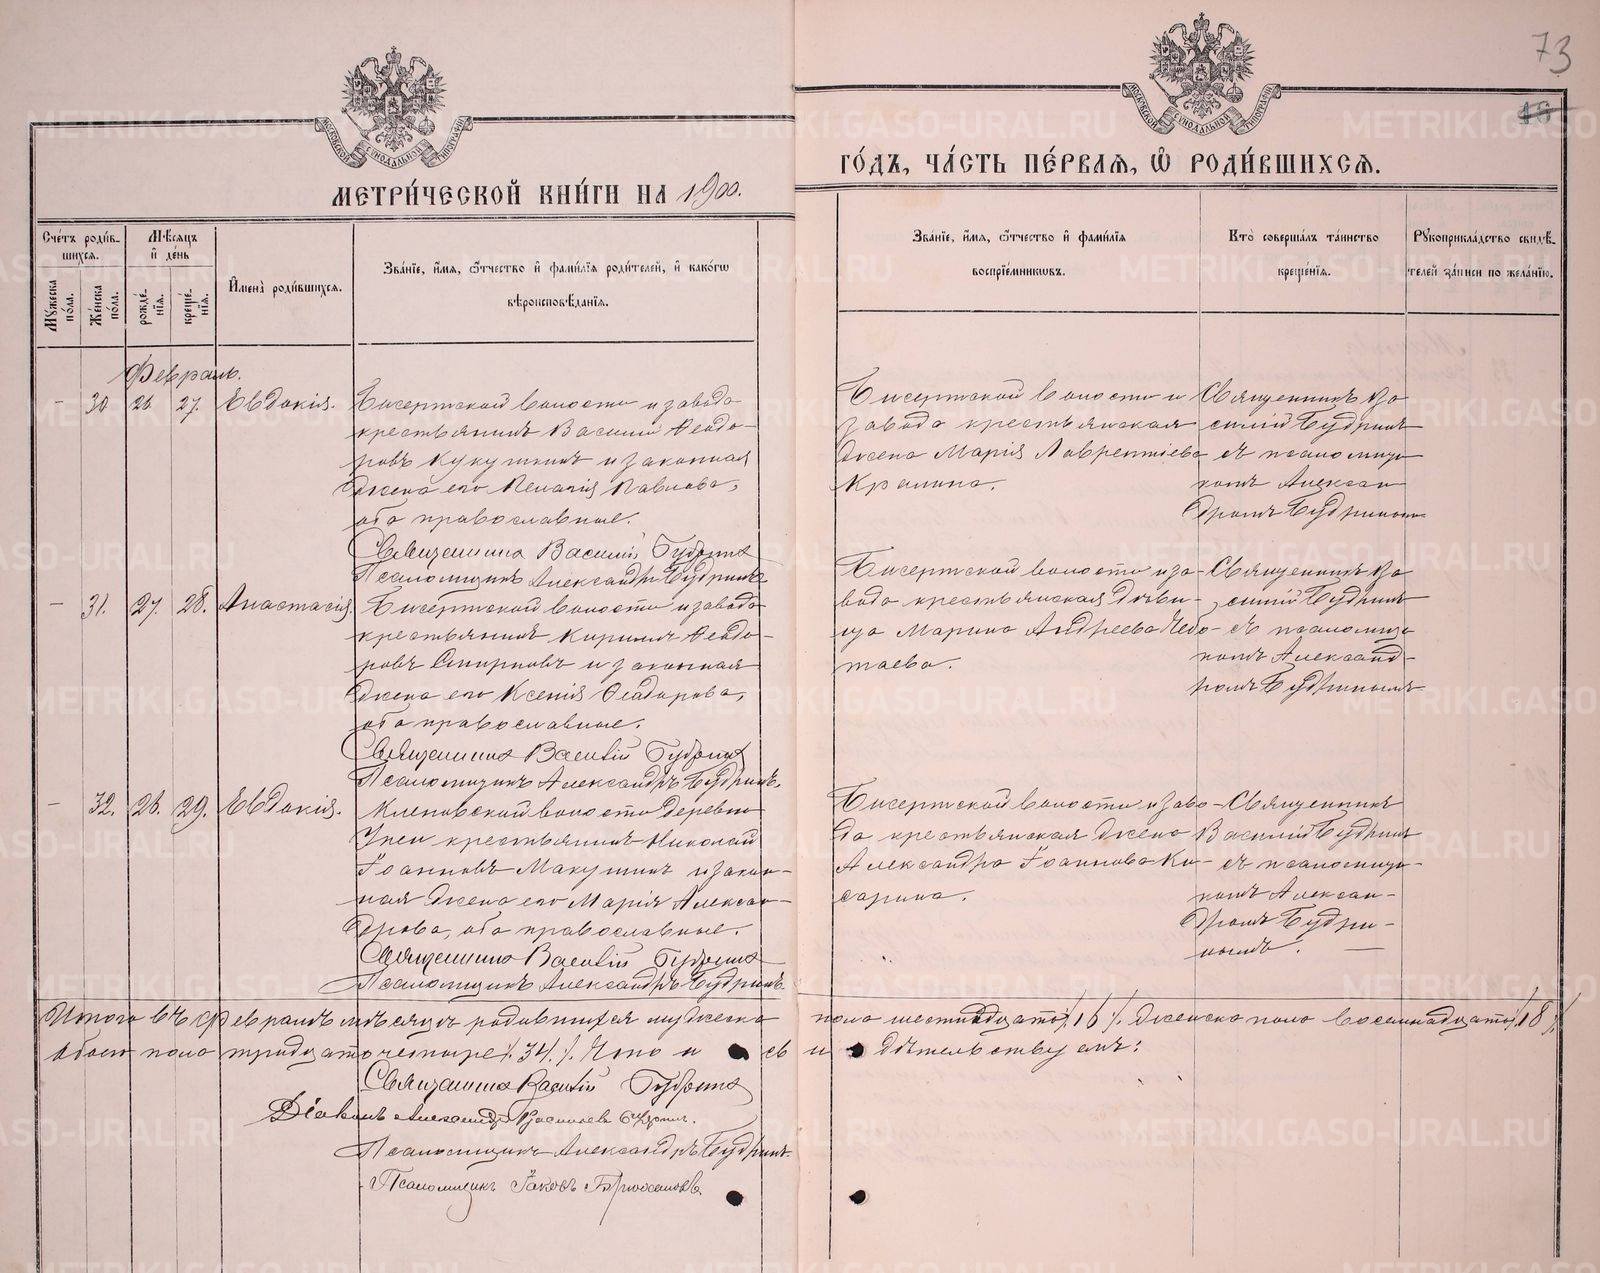 73
18
МОСКОВСКОЙ СѴНОДАЛЬНОЙ ТИПОГРАФІИ
МОСКОВСКОЙ СѴНОДАЛЬНОЙ ТИПОГРАФІИ
МЕТРИ́ЧЕСКОЙ КНИ́ГИ НА 1900.
ГО́ДЪ, ЧА́СТЬ ПЕ́РВАѦ, Ѿ РОДИ́ВШИХСѦ.
Сче́тъ роди́в-
шихся.
Мꙋ́жеска по́ла.
Же́нска по́ла.
Мѣ́сяцъ
и҆ де́нь
рожде́-
нїя.
креще́-
нїя.
И҆мена̀ роди́вшихся.
Зва́нїе, и҆́мя, ѻ҆́тчество и҆ фами́лїя роди́телей, и҆ како́гѡ
вѣроисповѣ́данїя.
Зва́нїе, и҆́мя, ѻ҆́тчество и҆ фами́лїя
воспрїе́мникѡвъ.
Кто̀ соверша́лъ та́инство
креще́нїя.
Рꙋкоприкла́дство свидѣ́-
телей за́писи по жела́нїю.
Февраль.
- 30 26 27. Евдокія.
Бисертской волости и завода
крестьянинъ Василій Феодо-
ровъ Кукушкинъ и законная
жена его Пелагія Павлова,
оба православные.
Священникъ Василій Будринъ
Псаломщикъ Александръ Будринъ
Бисертской волости и
завода крестьянская
жена Марія Лаврентіева
Кралина.
Священникъ Ва
силій Будринъ
съ псаломщи
комъ Алексан
дромъ Будринымъ
- 31. 27 28. Анастасія.
Бисертской волости и завода
крестьянинъ Кириллъ Феодо-
ровъ Смирновъ и законная
жена его Ксенія Феодорова,
оба православные.
Священникъ Василій Будринъ
Псаломщикъ Александръ Будринъ.
Бисертской волости и за-
вода крестьянская дѣви-
ца Марина Андреева Чебо-
таева.
Священникъ Ва
силій Будринъ
съ псаломщи
комъ Александ-
ромъ Будринымъ
- 32. 26. 29. Евдокія.
Кленовской волости деревни
крестьянинъ Николай
Іоанновъ Макушинъ и закон-
ная жена его Марія Алексан-
дрова, оба православные.
Священникъ Василій Будринъ
Псаломщикъ Александръ Будринъ
Бисертской волости и заво-
да крестьянская жена
Александра Іоаннова Ки-
сарина.
Священникъ
Василій Будринъ
съ псаломщи-
комъ Алексан-
дромъ Будри-
нымъ.
Итого въ Февралѣ мѣсяцѣ родившихся мужеска пола шестнадцать /.16/. женска пола восемнадцать /.18/.
обоего пола тридцать четыре /.34./. Что и свидѣтельствуемъ:
Священникъ Василій Будринъ
Діаконъ Александръ Васильевъ Будринъ.
Псаломщикъ Александръ Будринъ.
Псаломщикъ Іаковъ